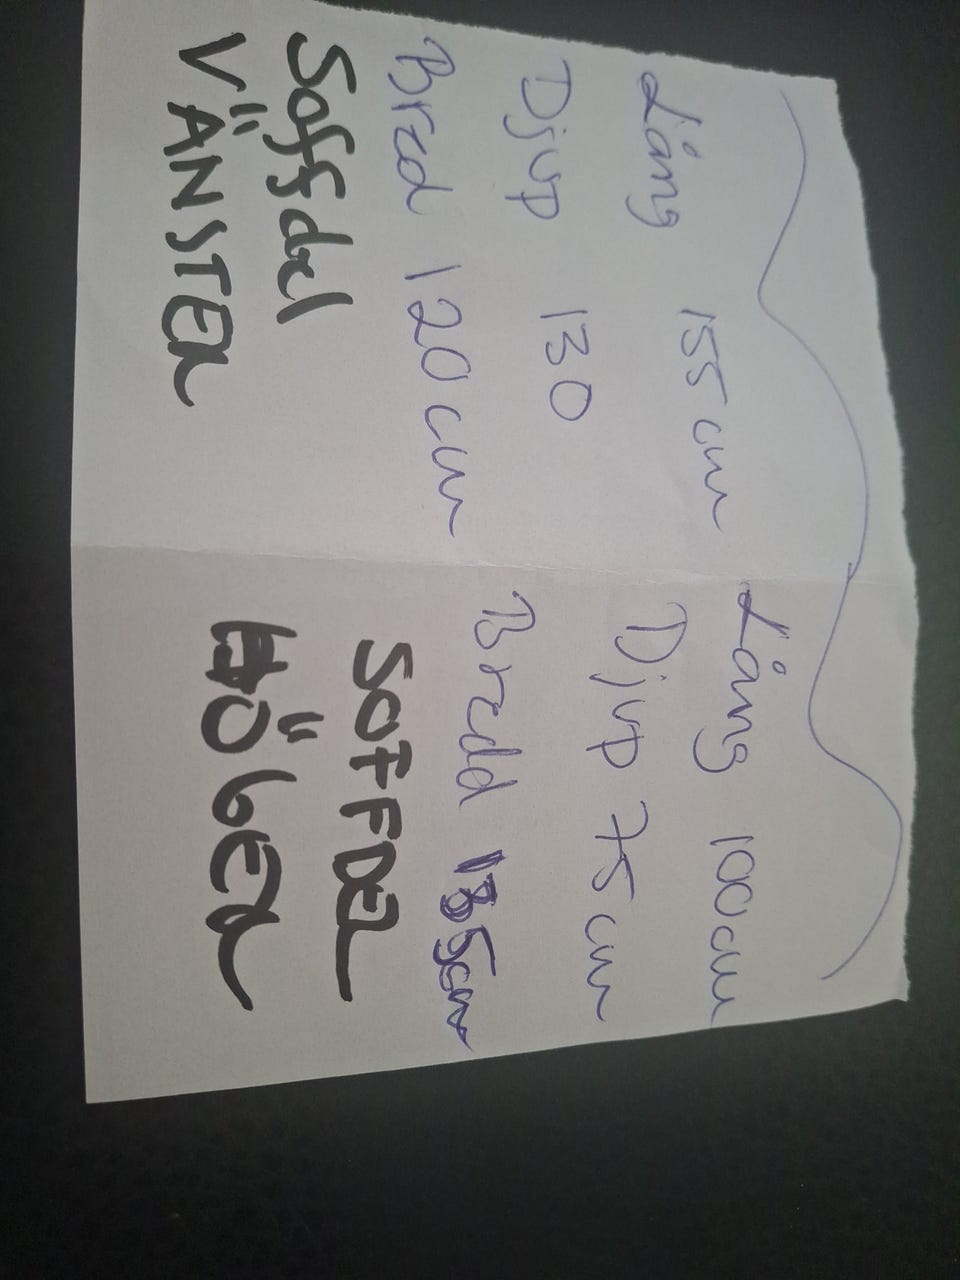 Lång 155 cm
Djup 130
Bred 120 cm
Soffdel
VÄNSTER
Lång 100 cm
Djup 75 cm
Bredd 135 cm
SOFFDEL
HÖGER